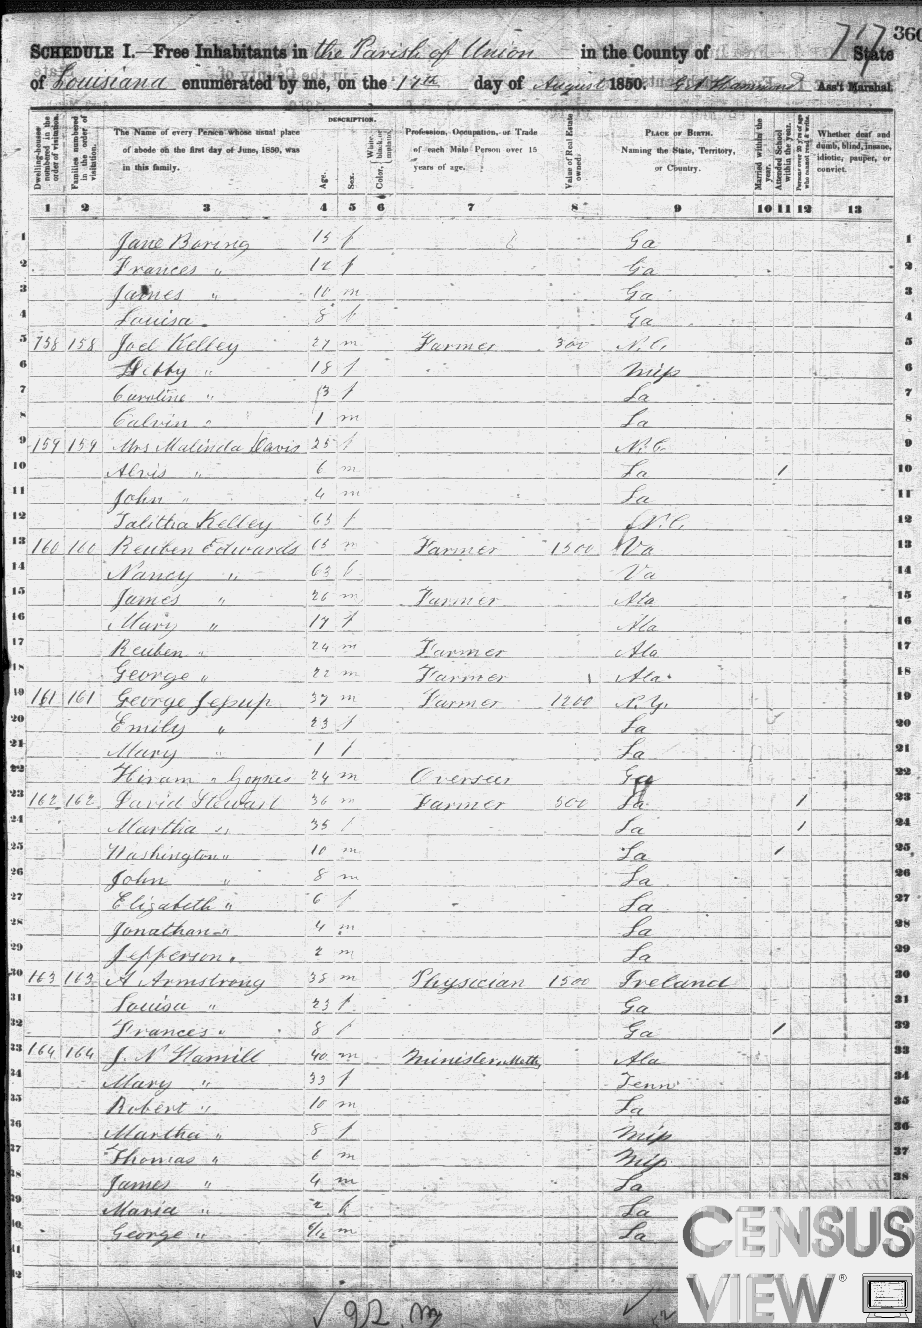 717 360
SCHEDULE I.—Free Inhabitants in the Parish of Union in the County of State
of Louisiana enumerated by me, on the 17th day of August 1850. Ass't Marshal.
Dwelling-houses numbered in the order of visitation.
Families numbered in the order of visitation.
The Name of every Person whose usual place of abode on the first day of June, 1850, was in this family.
DESCRIPTION.
Age.
Sex.
Color, White, black, or mulatto.
Profession, Occupation, or Trade of each Male Person over 15 years of age.
Value of Real Estate owned.
PLACE OF BIRTH. Naming the State, Territory, or Country.
Married within the year.
Attended School within the year.
Persons over 20 y'rs of age who cannot read & write.
Whether deaf and dumb, blind, insane, idiotic, pauper, or convict.
1 2 3 4 5 6 7 8 9 10 11 12 13
1 Jane Boring 15 f Ga 1
2 Frances " 12 f Ga 2
3 James " 10 m Ga 3
4 Louisa " 8 f Ga 4
5 158 158 Joel Kelley 27 m Farmer 300 N.C. 5
6 " 18 f Miss 6
7 Caroline " 3 f La 7
8 Calvin " 1 m La 8
9 159 159 Mrs Malinda Davis 25 f N.C. 9
10 Alvis " 6 m La / 10
11 John " 4 m La 11
12 Talitha Kelley 63 f N.C. 12
13 160 160 Reuben Edwards 65 m Farmer 1500 Va 13
14 Nancy " 63 f Va 14
15 James " 26 m Farmer Ala 15
16 Mary " 17 f Ala 16
17 Reuben " 24 m Farmer Ala 17
18 George " 22 m Farmer Ala 18
19 161 161 George Jessup 37 m Farmer 1200 N.Y. 19
20 Emily " 23 f La 20
21 Mary " 1 f La 21
22 Hiram " Goynes 24 m Overseer Ga 22
23 162 162 David Stewart 36 m Farmer 500 La / 23
24 Martha " 35 f La / 24
25 Washington " 10 m La / 25
26 John " 8 m La 26
27 Elizabeth " 6 f La 27
28 Jonathan " 4 m La 28
29 Jefferson " 2 m La 29
30 163 163 A Armstrong 38 m Physician 1500 Ireland 30
31 Louisa " 23 f Ga 31
32 Frances " 8 f Ga / 32
33 164 164 J. N Hamill 40 m Minister, Meth. Ala 33
34 Mary " 33 f Tenn 34
35 Robert " 10 m La 35
36 Martha " 8 f Miss 36
37 Thomas " 6 m Miss 37
38 James " 4 m La 38
39 Maria " 2 f La
40 George " 9/12 m La
41
42
CENSUS
VIEW®